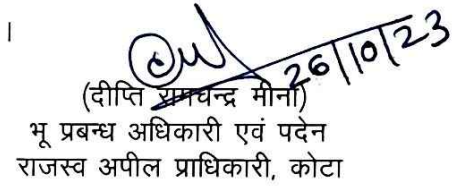 ।
26/10/23
(दीप्ति रामचन्द्र मीना)
भू प्रबन्ध अधिकारी एवं पदेन
राजस्व अपील प्राधिकारी, कोटा